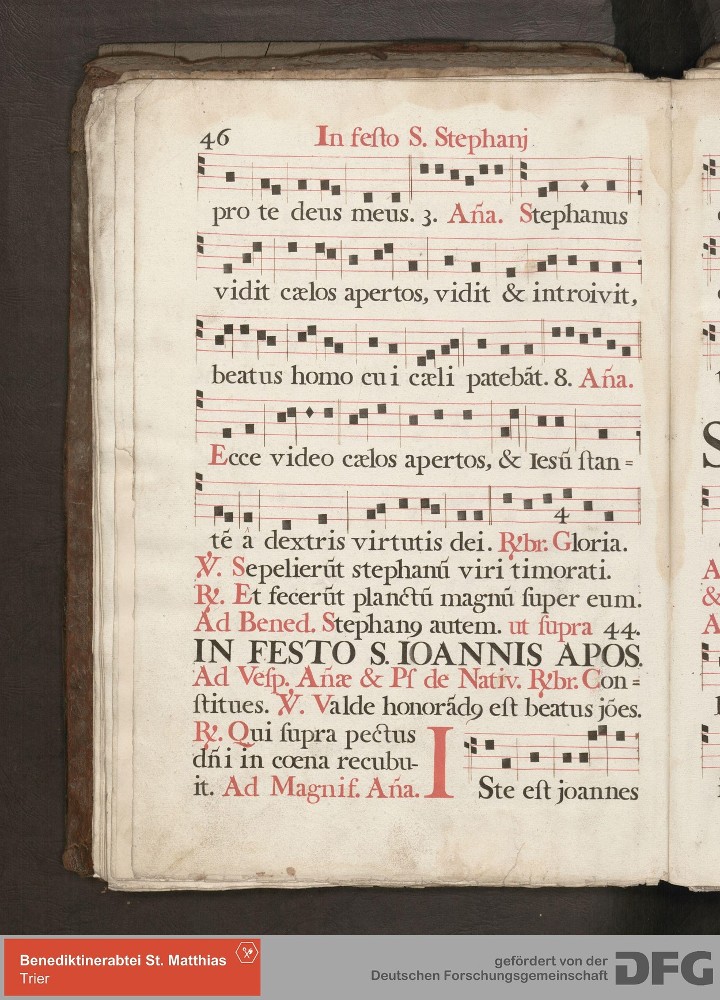 46 In festo S. Stephanj
pro te deus meus. 3. Aña. Stephanus
vidit cælos apertos, vidit & introivit,
beatus homo cui cæli patebãt. 8. Aña.
Ecce video cælos apertos, & Iesũ stan=
4
tẽ â dextris virtutis dei. ℟br. Gloria.
℣. Sepelierũt stephanũ viri timorati.
℟. Et fecerũt planctũ magnũ super eum.
Ad Bened. Stephanꝯ autem. ut supra 44.
IN FESTO S. IOANNIS APOS.
Ad Vesp. Añæ & Ps de Nativ. ℟br. Con=
stitues. ℣. Valde honorãdꝯ est beatus jões.
℟. Qui supra pectus
dñi in cœna recubu-
it. Ad Magnif. Aña.
ISte est joannes
Benediktinerabtei St. Matthias
Trier
gefördert von der
Deutschen Forschungsgemeinschaft
DFG